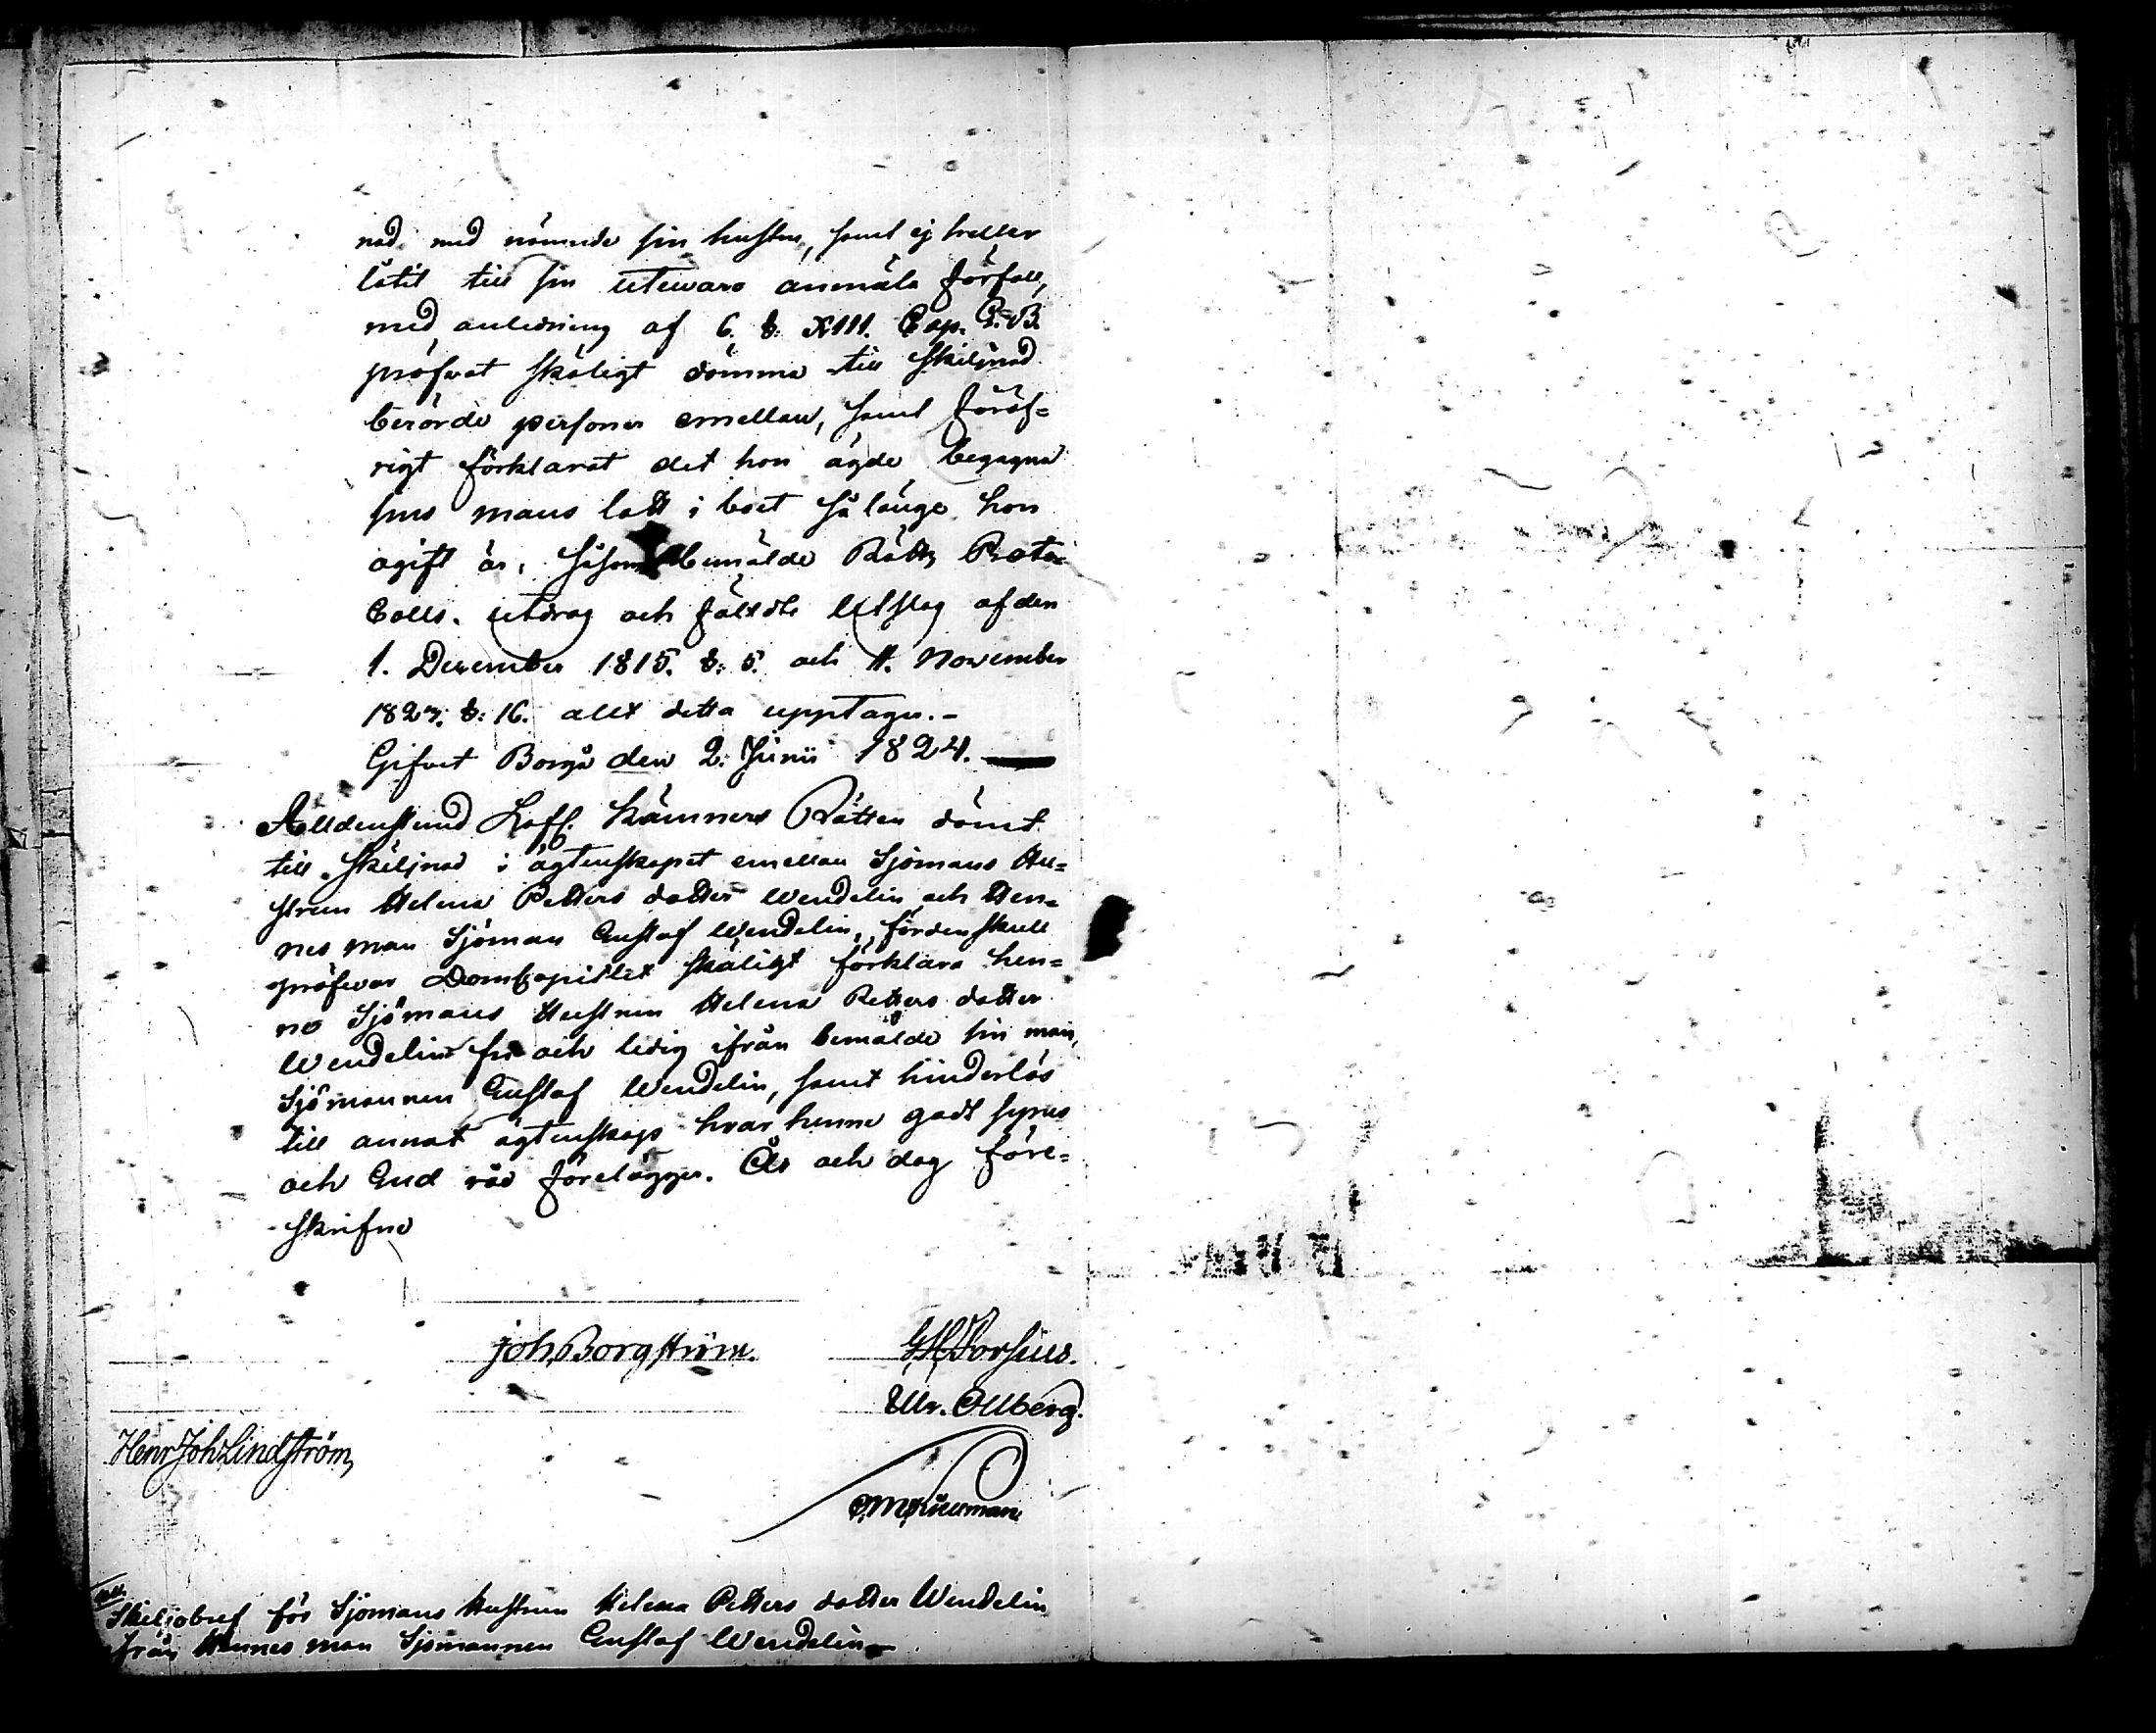 nad med nämnde sin hustru, samt ej heller
låtit till sin utewaro anmäla förfall,
med anledning af 6. §. XIII. Cap. G. B.
pröfwat skäligt dömma till skiljnad
berörde personer emellan, samt föröf=
rigt förklarat det hon ägde begagna
sins mans lott i boet så länge hon
ogift är, såsom bemälde Rätts Proto=
Colls. utdrag och fälldte Utslag af den
1. December 1815. §. 5. och 11. November
1823. §: 16. allt detta upptager.-
Gifwet Borgå den 2. Junii 1824.
Alldenstund Lofl. Kämners Rätten dömt
till skiljnad i ägtenskapet emellan Sjömans Hu=
strun Helena Petters dotter Wendelin och Hen=
nes man Sjöman Gustaf Wendelin, fördenskull
pröfwar DomCapitlet skäligt förklara hen=
ne Sjömans Hustrun Helena Petters dotter
Wendelin fri och ledig ifrån bemälde sin man,
Sjömannen Gustaf Wendelin, samt hinderlös
till annat ägtenskap hvar henne godt synes
och Gud råd förelägger. År och dag före=
skrifne
Joh. Borgström. G. H. Forsius.
Ulr. Ollberg.
Henr Joh Lindström,
Skiljobref för Sjömans Hustrun Helena Petters dotter Wendelin
från Hennes man Sjömannen Gustaf Wendelin